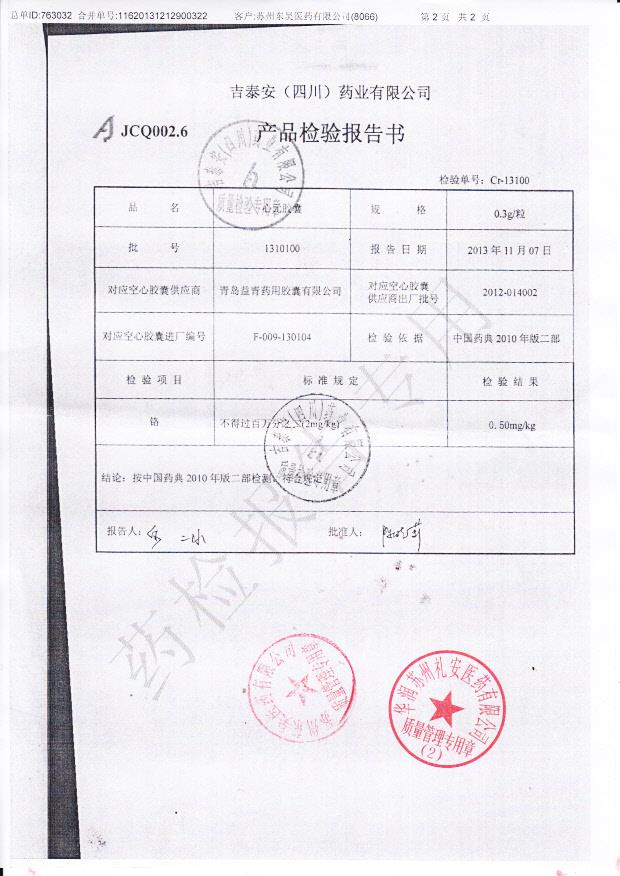 总单ID:763032 合并单号:11620131212900322 客户:苏州东吴医药有限公司(8066) 第 2 页 共 2 页
吉泰安（四川）药业有限公司
JCQ002.6 产品检验报告书
检验单号：Cr-13100
品 名 心元胶囊 规 格 0.3g/粒
批 号 1310100 报 告 日 期 2013 年 11 月 07 日
对应空心胶囊供应商 青岛益青药用胶囊有限公司 对应空心胶囊
供应商出厂批号 2012-014002
对应空心胶囊进厂编号 F-009-130104 检 验 依 据 中国药典 2010 年版二部
检 验 项 目 标 准 规 定 检 验 结 果
铬 不得过百万分之二(2mg/kg) 0.50mg/kg
结论：按中国药典 2010 年版二部检测，符合规定
报告人： 批准人：
吉泰安(四川)药业有限公司
质量检验专用章
吉泰安(四川)药业有限公司
质量检验专用章
药检报告专用
华润苏州礼安医药有限公司
质量管理专用章
(2)